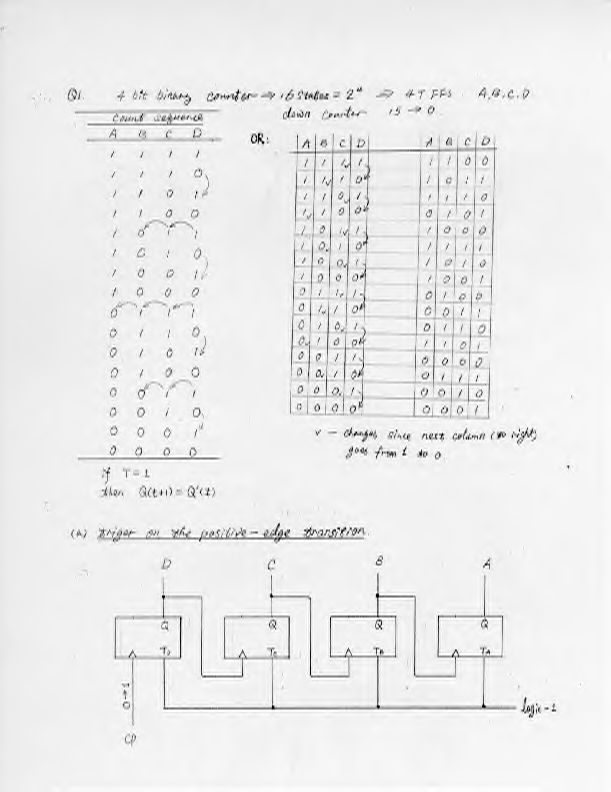 Q1. 4 bit binary counter ⇒ 16 states = 2⁴ ⇒ 4 T FFS A,B,C,D
down counter 15 → 0
count sequence
A B C D
1 1 1 1
1 1 1 0
1 1 0 1
1 1 0 0
1 0 1 1
1 0 1 0
1 0 0 1
1 0 0 0
0 1 1 1
0 1 1 0
0 1 0 1
0 1 0 0
0 0 1 1
0 0 1 0
0 0 0 1
0 0 0 0
if T = 1
then Q(t+1) = Q'(t)
OR:
A B C D A B C D
1 1 1 1 1 1 0 0
1 1 1 0 1 0 1 1
1 1 0 1 1 1 1 0
1 1 0 0 0 1 0 1
1 0 1 1 1 0 0 0
1 0 1 0 1 1 1 1
1 0 0 1 1 0 1 0
1 0 0 0 1 0 0 1
0 1 1 1 0 1 0 0
0 1 1 0 0 0 1 1
0 1 0 1 0 1 1 0
0 1 0 0 1 1 0 1
0 0 1 1 0 0 0 0
0 0 1 0 0 1 1 1
0 0 0 1 0 0 1 0
0 0 0 0 0 0 0 1
v — changes since next column (to right)
goes from 1 to 0
(a) triger on the positive-edge transition.
D C B A
Q Q Q Q
T_D T_C T_B T_A
0→1
Logic-1
CP